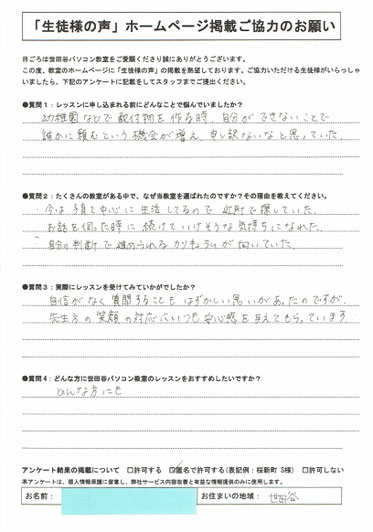 「生徒様の声」ホームページ掲載ご協力のお願い
日ごろは世田谷パソコン教室をご愛顧くださり誠にありがとうございます。
この度、教室のホームページに「生徒様の声」の掲載を熱望しております。ご協力いただける生徒様がいらっしゃ
いましたら、下記のアンケートに記載をしてスタッフまでご提出ください。
●質問1:レッスンに申し込まれる前にどんなことで悩んでいましたか?
幼稚園などで配付物を作る時、自分ができないことで
誰かに頼むという機会が増え、申し訳ないなと思っていた。
●質問2:たくさんの教室がある中で、なぜ当教室を選ばれたのですか?その理由を教えてください。
・今は子育て中心に生活してるので近所で探していた。
・お話を伺った時に続けていけそうな気持ちになれた。
・自分の判断で進められるカリキュラムが向いていた。
●質問3:実際にレッスンを受けてみていかがでしたか?
自信がなく質問することもはずかしい思いがあったのですが、
先生方の笑顔の対応にいつも安心感を与えてもらっています。
●質問4:どんな方に世田谷パソコン教室のレッスンをおすすめしたいですか?
どんな方にも
アンケート結果の掲載について □許可する ☑匿名で許可する(表記例:桜新町 S様) □許可しない
本アンケートは、個人情報保護に留意し、弊社サービス内容改善と有益な情報提供のみに使用します。
お名前: お住まいの地域: 世田谷